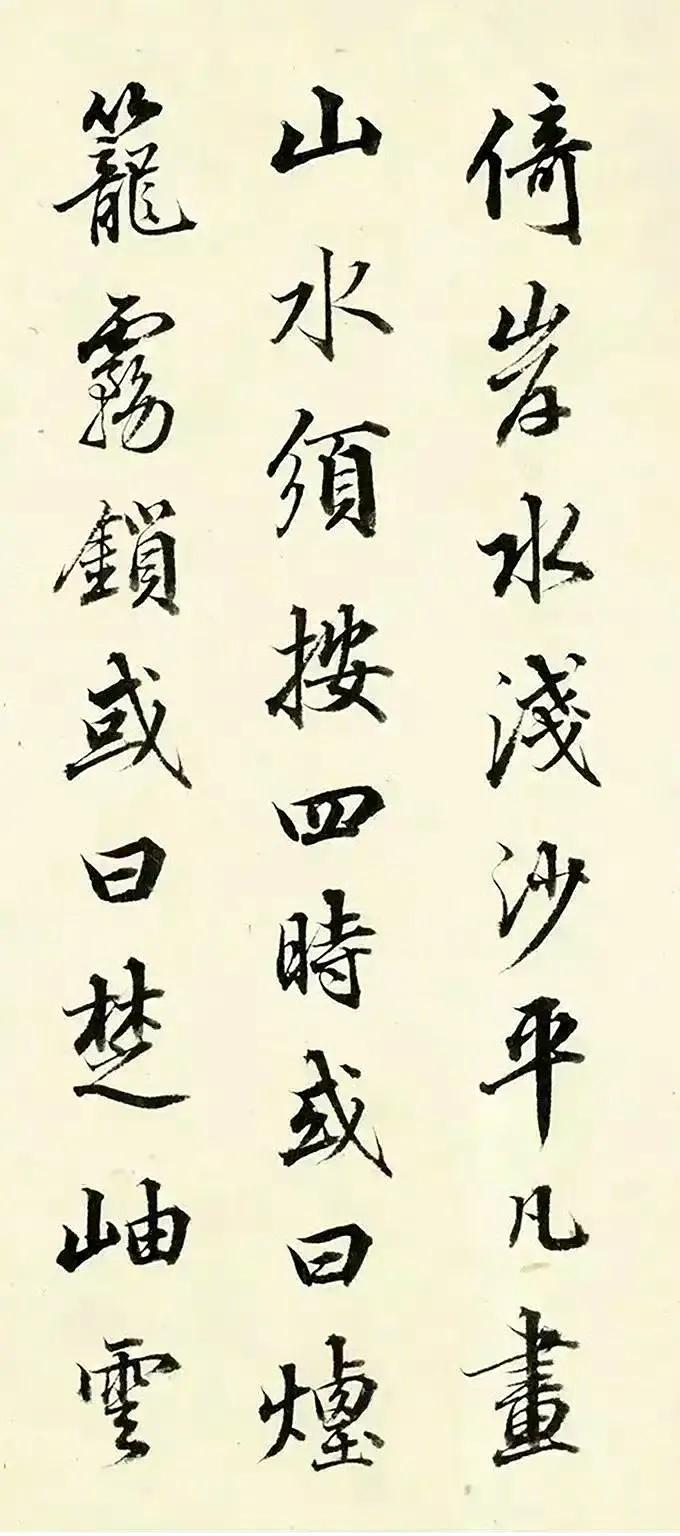 倚岸水淺沙平凡畫
山水須按四時或曰煙
籠霧鎖或曰楚岫雲